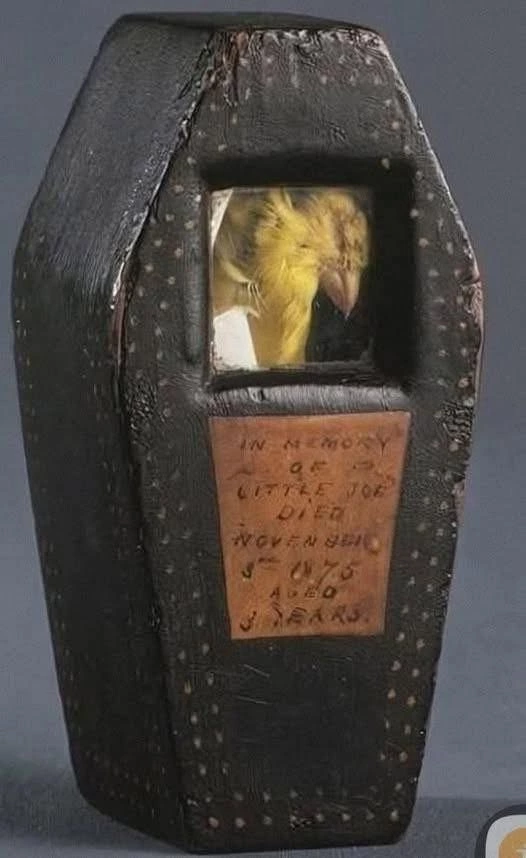 IN MEMORY
OF
LITTLE JOE
DIED
NOVEMBER
3RD 1875
AGED
3 YEARS.